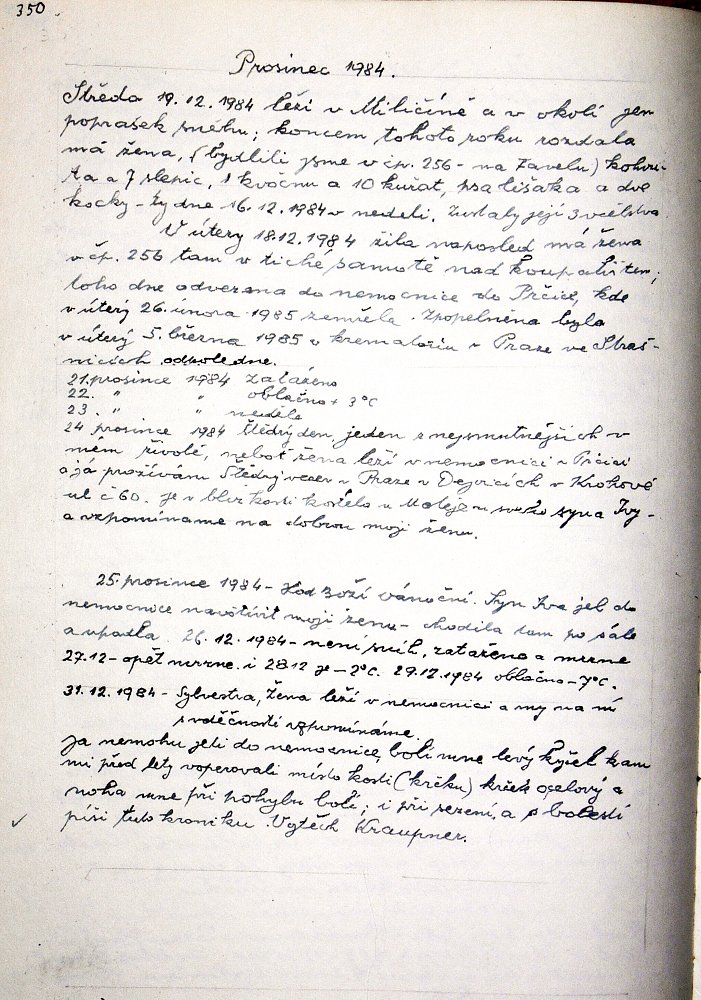 350
Prosinec 1984.
Středa 19.12.1984 leží v Miličíně a v okolí jen
poprašek sněhu; koncem tohoto roku rozdala
má žena, (bydlili jsme v čp. 256 - na Zavelu) kohou-
ta a 7 slepic, 1 kvočnu a 10 kuřat, psa lišáka a dvě
kočky - týdne 16.12.1984 v neděli. Zůstaly její 3 včelstva
V úterý 18.12.1984 žila naposled má žena
v čp. 256 tam v tiché samotě nad koupalištěm;
toho dne odvezena do nemocnice do Prčice, kde
v úterý 26. února 1985 zemřela. Zpopelněna byla
v úterý 5. března 1985 v krematoriu v Praze ve Straš-
nicích odpoledne.
21. prosince 1984 zataženo
22. " " oblačno + 3°C
23. " " neděle
24 prosince 1984 Štědrý den, jeden z nejsmutnějších v
mém životě, neboť žena leží v nemocnici v Prčici
a já prožívám Štědrý večer v Praze v Dejvicích v Krohově
ul č 60. je v blízkosti kostela u Matěje u syna Ivy -
a vzpomínáme na dobrou moji ženu.
25. prosince 1984 - Hod Boží vánoční. Syn Iva jel do
nemocnice navštívit moji ženu - chodila tam po sále
a upadla. 26. 12. 1984 - není sníh, zataženo a mrzne
27.12 - opět mrzne. i 28 12 je - 2°C. 29.12.1984 oblačno - 7°C.
31.12.1984 - Sylvestra, žena leží v nemocnici a my na ní
s vděčností vzpomínáme.
Já nemohu jeti do nemocnice, bolí mne levý kyčel kam
mi před lety voperovali místo kosti (krčku) krček ocelový a
noha mne při pohybu bolí; i při sezení, a s bolestí
píši tuto kroniku. Vojtěch Kraupner.